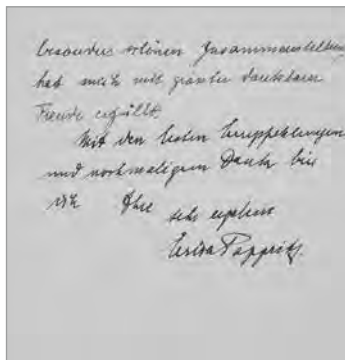 besonders schönen Zusammenstellung
hat mich mit großer dankbarer
Freude erfüllt.
Mit den besten Empfehlungen
und nochmaligem Dank bin
ich Ihre
sehr ergebene
Erica Pappritz.